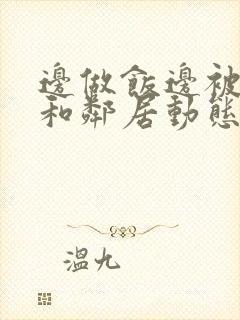 邊做飯邊被
和鄰居動態
溫九